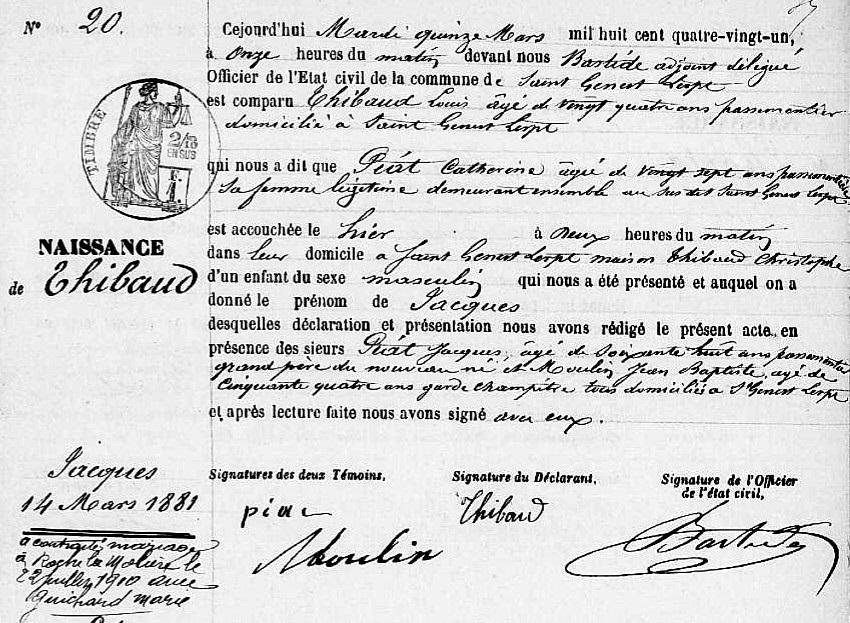 N° 20.
Cejourd'hui Mardi quinze Mars mil huit cent quatre-vingt-un,
à Onze heures du matin devant nous Bastide adjoint délégué
Officier de l'Etat civil de la commune de Saint Genest Lerpt
est comparu Thibaud Louis âgé de vingt quatre ans passementier
domicilié à Saint Genest Lerpt
TIMBRE
2/10
EN SUS
qui nous a dit que Piat Catherine âgée de vingt sept ans passementière
sa femme légitime demeurant ensemble au susdit Saint Genest Lerpt
est accouchée le hier à Deux heures du matin
NAISSANCE
de Thibaud
dans leur domicile à Saint Genest Lerpt maison Thibaud Christophe
d'un enfant du sexe masculin qui nous a été présenté et auquel on a
donné le prénom de Jacques
desquelles déclaration et présentation nous avons rédigé le présent acte, en
présence des sieurs Piat Jacques, âgé de Soixante huit ans passementier
grand père du nouveau né et Moulin Jean Baptiste, âgé de
Cinquante quatre ans garde champêtre tous domiciliés à St Genest Lerpt
et après lecture faite nous avons signé avec eux.
Jacques
14 Mars 1881
Signatures des deux Témoins,
Signature du Déclarant,
Signature de l'Officier
de l'état civil,
piat
Thibaud
Moulin
Bastide
a contracté mariage
à Roche la Molière le
22 juillet 1910 avec
Guichard Marie